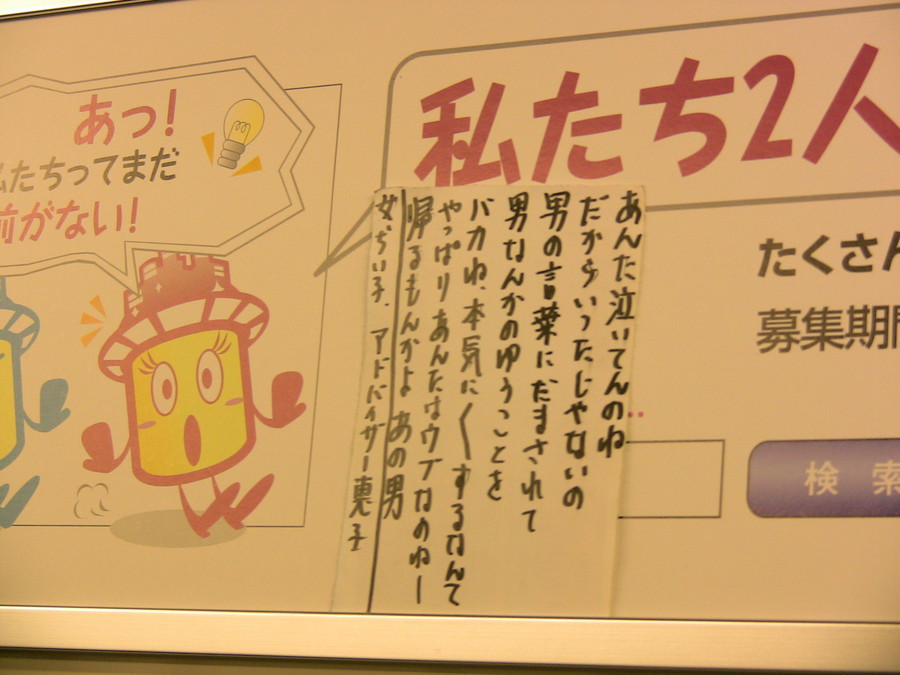 あっ!
私たちってまだ
前がない!
私たち2人
たくさん
募集期間
検索
あんた泣いてんのね
だからいったじゃないの
男の言葉にだまされて
男なんかのゆうことを
バカね、本気にくするなんて
やっぱりあんたはウブなのねー
帰るもんかよ あの男
女ぢい子、アドバイザー恵子